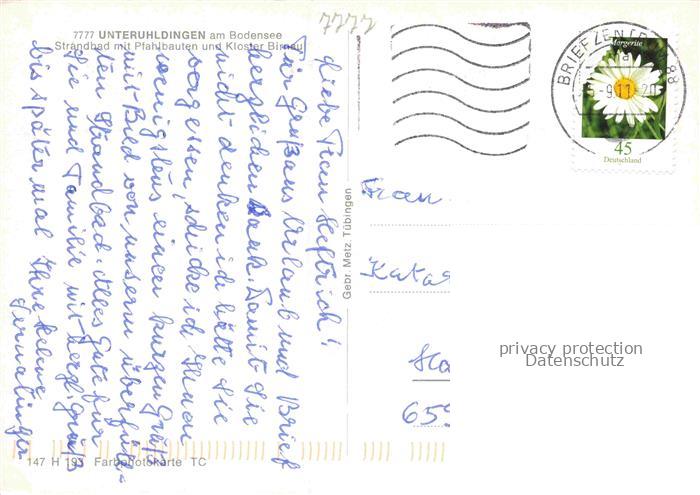 7777
7777 UNTERUHLDINGEN am Bodensee
Strandbad mit Pfahlbauten und Kloster Birnau
Liebe Frau Heftrich!
Für Gruß aus Urlaub und Brief
herzlichen Dank. Damit Sie
nicht denken ich hätte Sie
vergessen, schicke ich Ihnen
wenigstens einen kurzen Gruß
mit Bild von unserm überfüll-
ten Strandbad. Alles Gute für
Sie und Familie mit herzl. Gruß
bis später mal Ihre
147 H 193 Farbphotokarte TC
Gebr. Metz, Tübingen
BRIEFZEN 88
-9.11-20
Margerite
45
Deutschland
Frau
Kata
Ha
65
privacy protection
Datenschutz